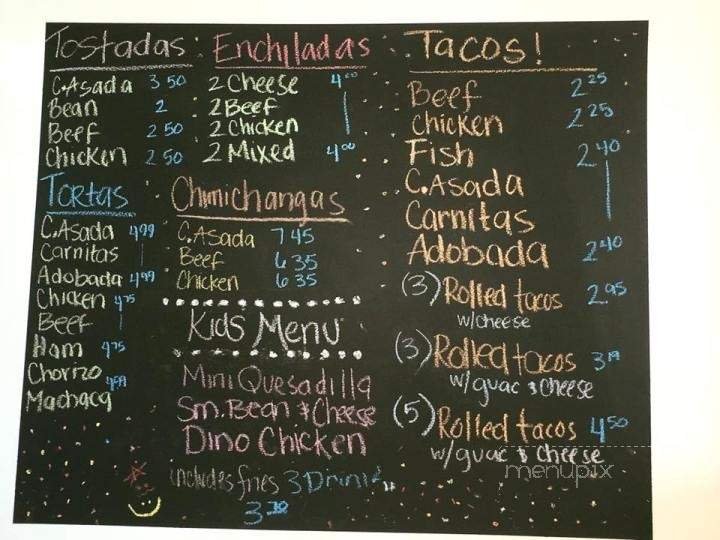 Tostadas
C.Asada 3 50
Bean 2
Beef 2 50
Chicken 2 50
Enchiladas
2 Cheese 4 00
2 Beef
2 Chicken
2 Mixed 4 00
Tortas
C.Asada 4 99
Carnitas
Adobada 4 99
Chicken 4 75
Beef
Ham 4 75
Chorizo 4 59
Machaca
Chimichangas
C.Asada 7 45
Beef 6 35
Chicken 6 35
Kids Menu
Mini Quesadilla
Sm. Bean & Cheese
Dino Chicken
includes fries & Drink
3
Tacos!
Beef 2 25
Chicken 2 25
Fish 2 40
C.Asada
Carnitas
Adobada 2 40
(3) Rolled tacos 2 95
w/cheese
(3) Rolled tacos 3 19
w/guac & Cheese
(5) Rolled tacos 4 50
w/guac & Cheese
menupix